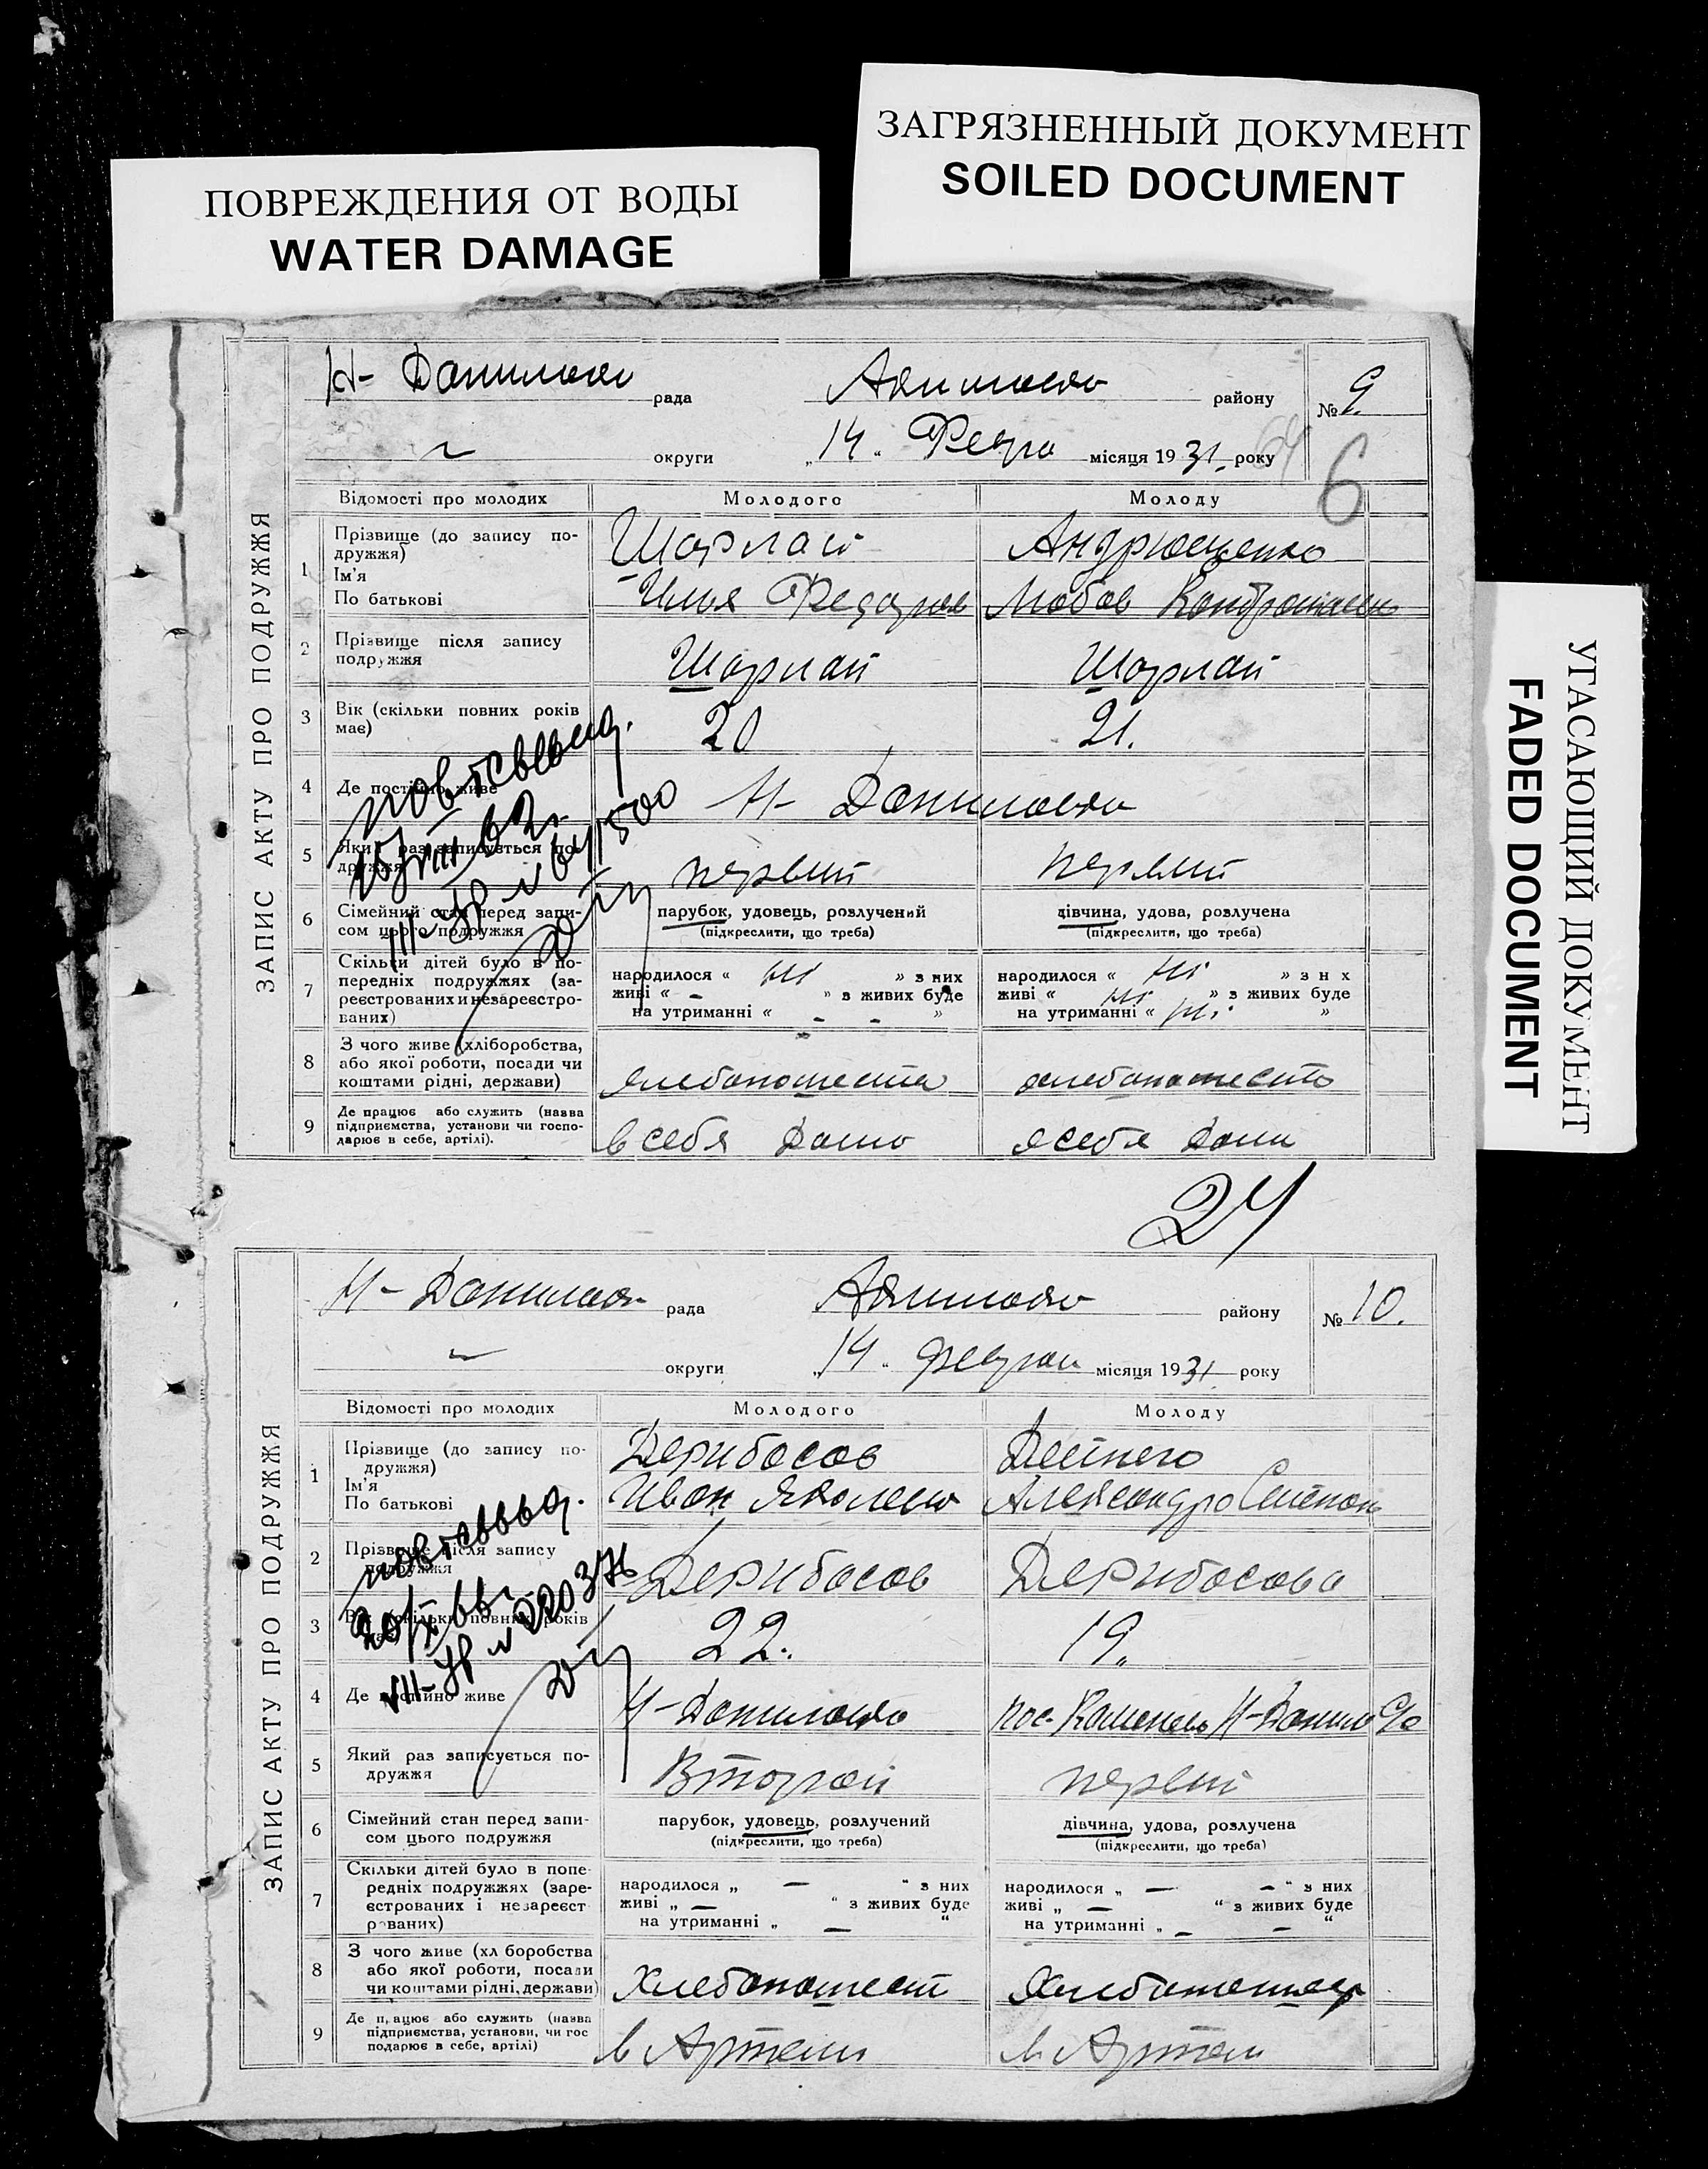 ЗАГРЯЗНЕННЫЙ ДОКУМЕНТ
SOILED DOCUMENT
ПОВРЕЖДЕНИЯ ОТ ВОДЫ
WATER DAMAGE
УГАСАЮЩИЙ ДОКУМЕНТ
FADED DOCUMENT
ЗАПИС АКТУ ПРО ПОДРУЖЖЯ
Н- Данилово рада району № 9.
округи „14“ Февра місяця 1931 року
6
Відомості про молодих Молодого Молоду
1 Прізвище (до запису по-
дружжя) Шарлай Андрющенко
Ім'я
По батькові Илья Федоров Любов
2 Прізвище після запису
подружжя Шарлай Шарлай
3 Вік (скільки повних років
має) 20 21.
4 Де постійно живе Н- Даниловка
5 Який раз записується по-
дружжя первий первий
6 Сімейний стан перед запи-
сом цього подружжя парубок, удовець, розлучений дівчина, удова, розлучена
(підкреслити, що треба) (підкреслити, що треба)
7 Скільки дітей було в по-
передніх подружжях (за-
реєстрованих и незареєстро-
ваних)
народилося « » з них народилося « » з н х
живі « - » з живих буде живі « » з живих буде
на утриманні « - - » на утриманні « »
8 З чого живе (хліборобства,
або якої роботи, посади чи
коштами рідні, держави)
9 Де працює або служить (назва
підприємства, установи чи госпо-
дарює в себе, артілі). в себя Дома в себя Дома
24
ЗАПИС АКТУ ПРО ПОДРУЖЖЯ
Н- Данилов рада району № 10.
округи „14“ феврал місяця 1931 року
Відомості про молодих Молодого Молоду
1 Прізвище (до запису по-
дружжя) Дерибасов Дейнего
Ім'я
По батькові Иван Яковлев Александра Степан
2 Прізвище після запису
подружжя Дерибасов Дерибасова
3 Вік (скільки повних років
22. 19.
4 Де постійно живе Н-Даниловка пос. Н-Данило с/с
5 Який раз записується по-
дружжя Второй первий
6 Сімейний стан перед запи-
сом цього подружжя парубок, удовець, розлучений дівчина, удова, розлучена
(підкреслити, що треба) (підкреслити, що треба)
7 Скільки дітей було в попе-
редніх подружжях (заре-
єстрованих і незареєст
рованих)
народилося „ — “ з них народилося „ — - “ з них
живі „ — “ з живих буде живі „ — “ з живих буде
на утриманні „ — “ на утриманні „ - — “
8 З чого живе (хл боробства
або якої роботи, посади
чи коштами рідні, держави) Хлебопашест
9 Де працює або служить (назва
підприємства, установи, чи гос
подарює в себе, артілі) в Артели в Артели